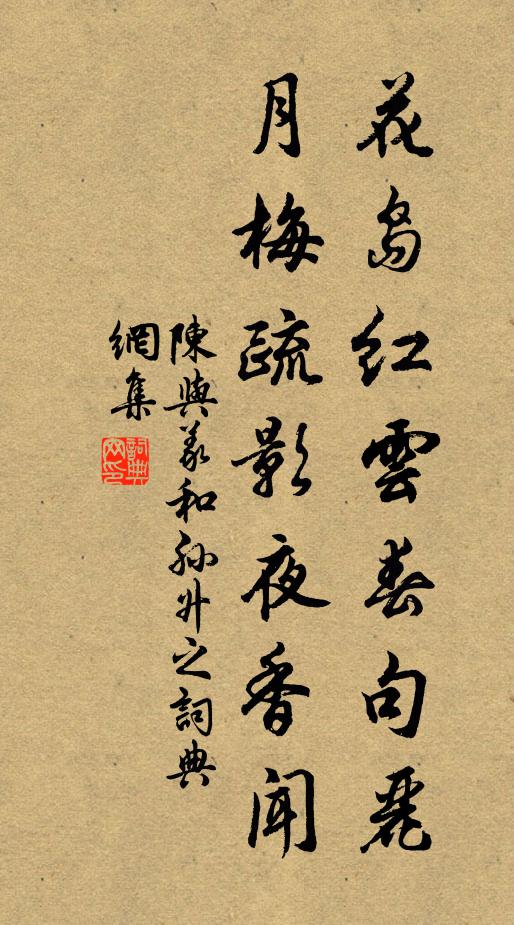 花島紅雲春句麗
月梅疏影夜香聞
陳與義和孫升之詞典
網集
詞典
網印